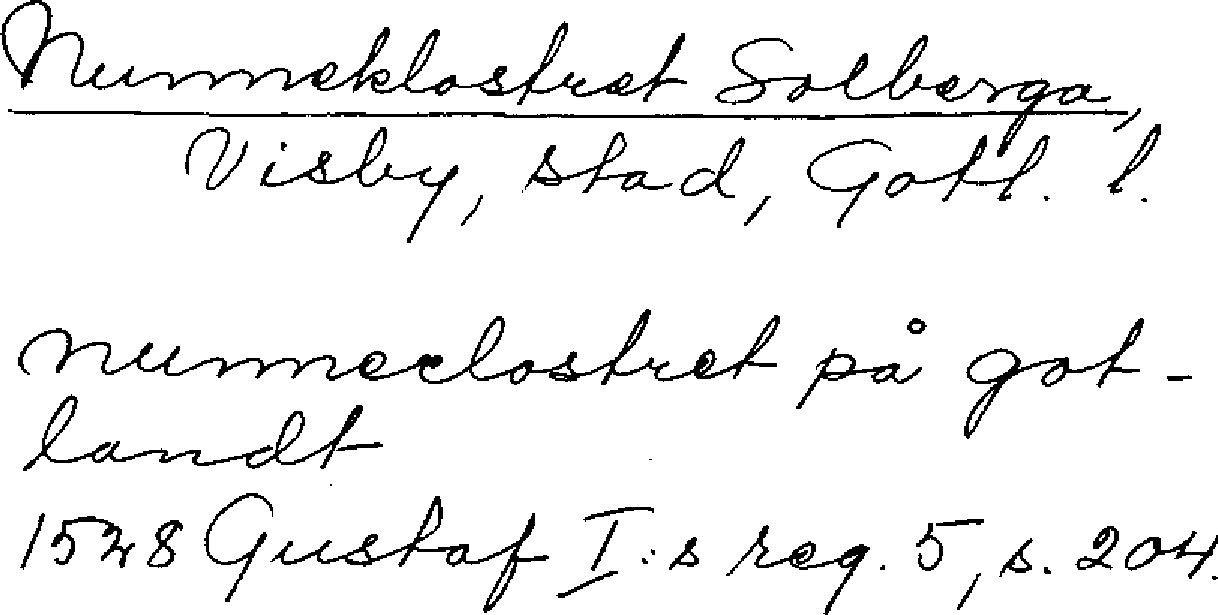 Nunneklostret Solberga,
Visby, stad, Gotl. l.
nunneclostret på got-
landt
1528 Gustaf I:s reg. 5, s. 204.